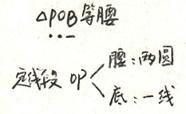 △POB等腰
定线段 OP
腰:两圆
底:一线